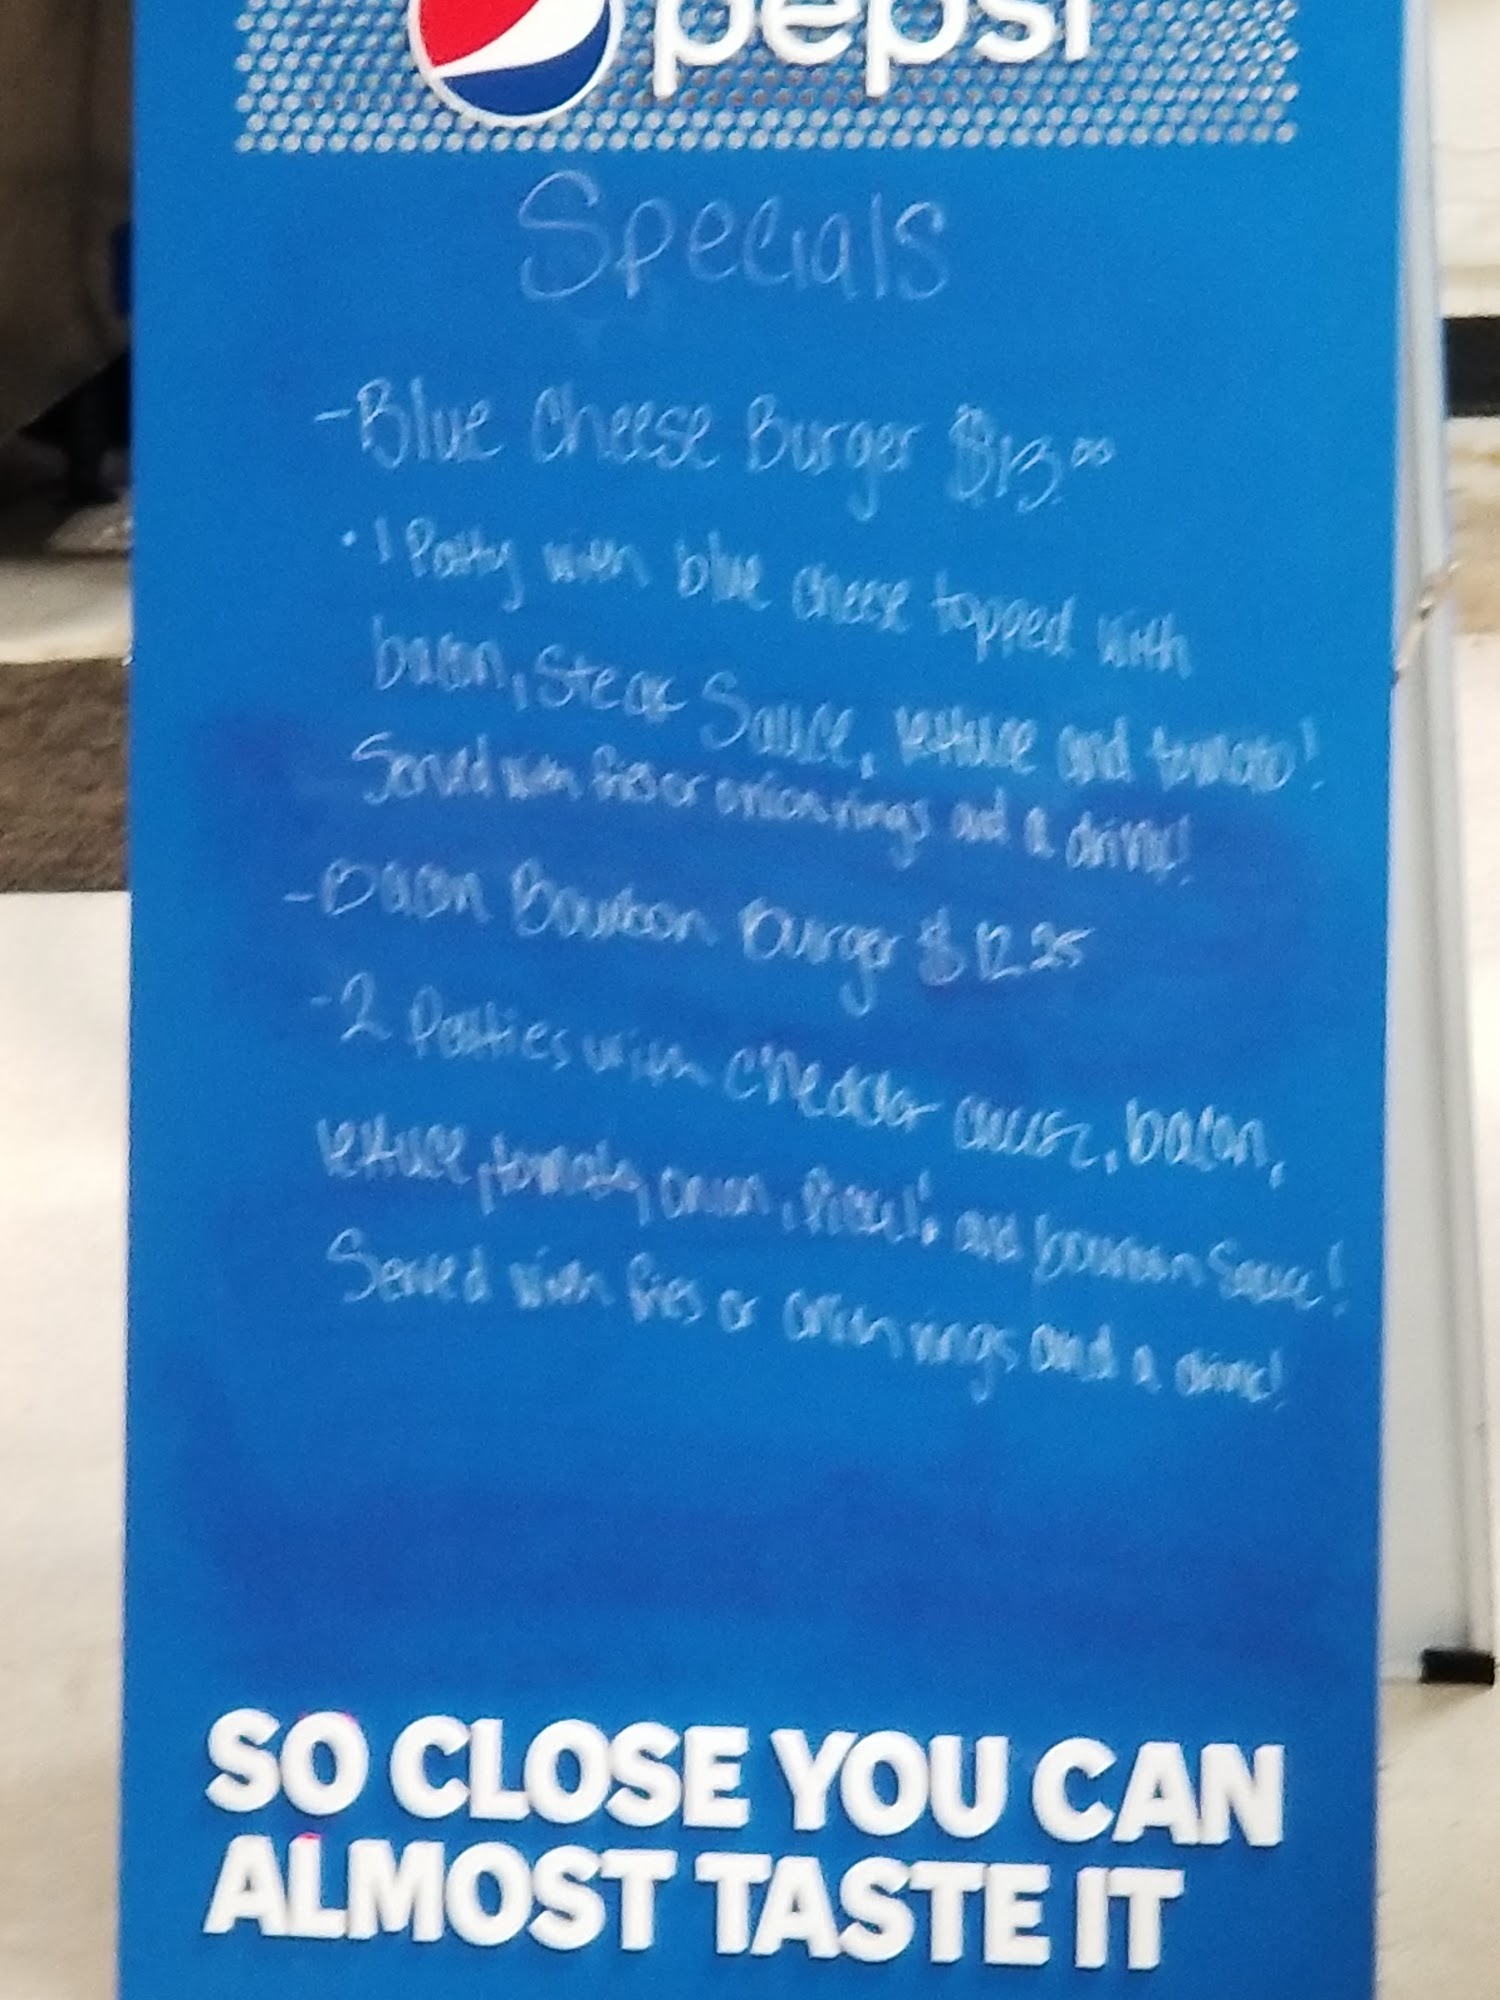 pepsi
Specials
-Blue Cheese Burger $13.00
• 1 Patty with blue cheese topped with
bacon, Steak Sauce, lettuce and tomato!
Served with fries or onion rings and a drink!
-Bacon Bourbon Burger $12.25
-2 Patties with Cheddar cheese, bacon,
lettuce, tomato, onion, Pickel's and bourbon Sauce!
Served with fries or onion rings and a drink!
SO CLOSE YOU CAN
ALMOST TASTE IT